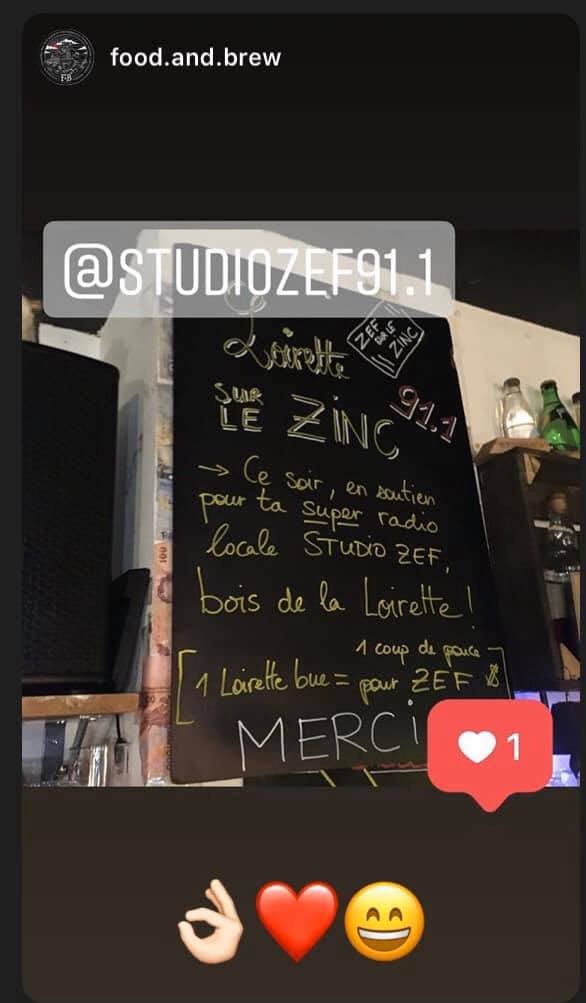 food.and.brew
@STUDIOZEF91.1
Loirette
ZEF
SUR LE
ZINC
SUR
LE ZINC
91.1
→ Ce soir, en soutien
pour ta super radio
locale STUDIO ZEF,
bois de la Loirette !
1 coup de pouce
1 Loirette bue = pour ZEF
MERCI
1
100